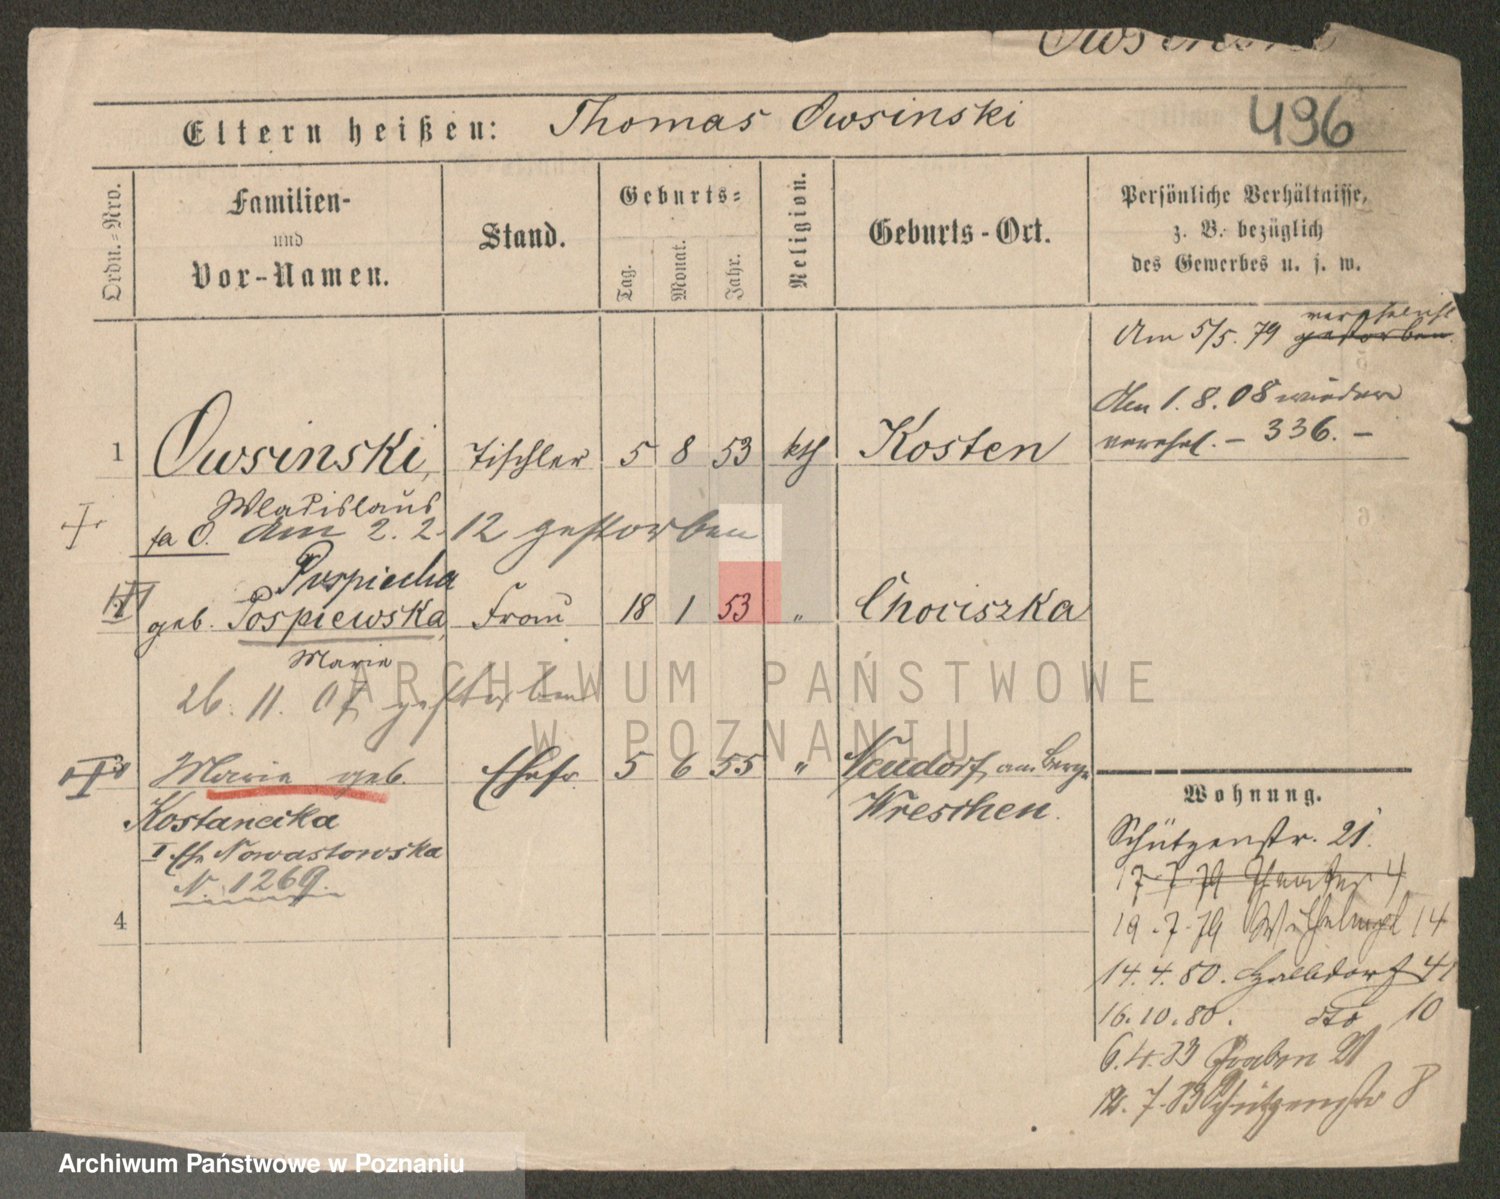 Owsinski
Eltern heißen: Thomas Owsinski
496
Ordn.=Nro.
Familien-
und
Vor-Namen.
Stand.
Geburts=
Tag.
Monat.
Jahr.
Religion.
Geburts-Ort.
Persönliche Verhältnisse,
z. B. bezüglich
des Gewerbes u. s. w.
verehelicht
Am 5/5. 79 gestorben
Am 1. 8. 08 wieder
verehel. – 336. –
1 Owsinski, Tischler 5 8 53 kth Kosten
Wladislaus
fa O. am 2. 2. 12 gestorben
Pospiecha
geb. Pospiewska, Frau 18 1 53 " Chociszka
Marie
26. 11. 07 gestorben
ARCHIWUM PAŃSTWOWE
W POZNANIU
3 Marie geb. Ehefr. 5 6 55 " Neudorf am Berge
Kostancika Wreschen.
I Ehe Nowastowska
N. 1269.
4
Wohnung.
Schützenstr. 21.
17.7.79 Theater 4
19.7.79 Wilhelmspl 14
14.4.80. Halbdorf 41
16.10.80. dto 10
6.4.83 Graben 21
12.7.83 Schützenstr 8
Archiwum Państwowe w Poznaniu